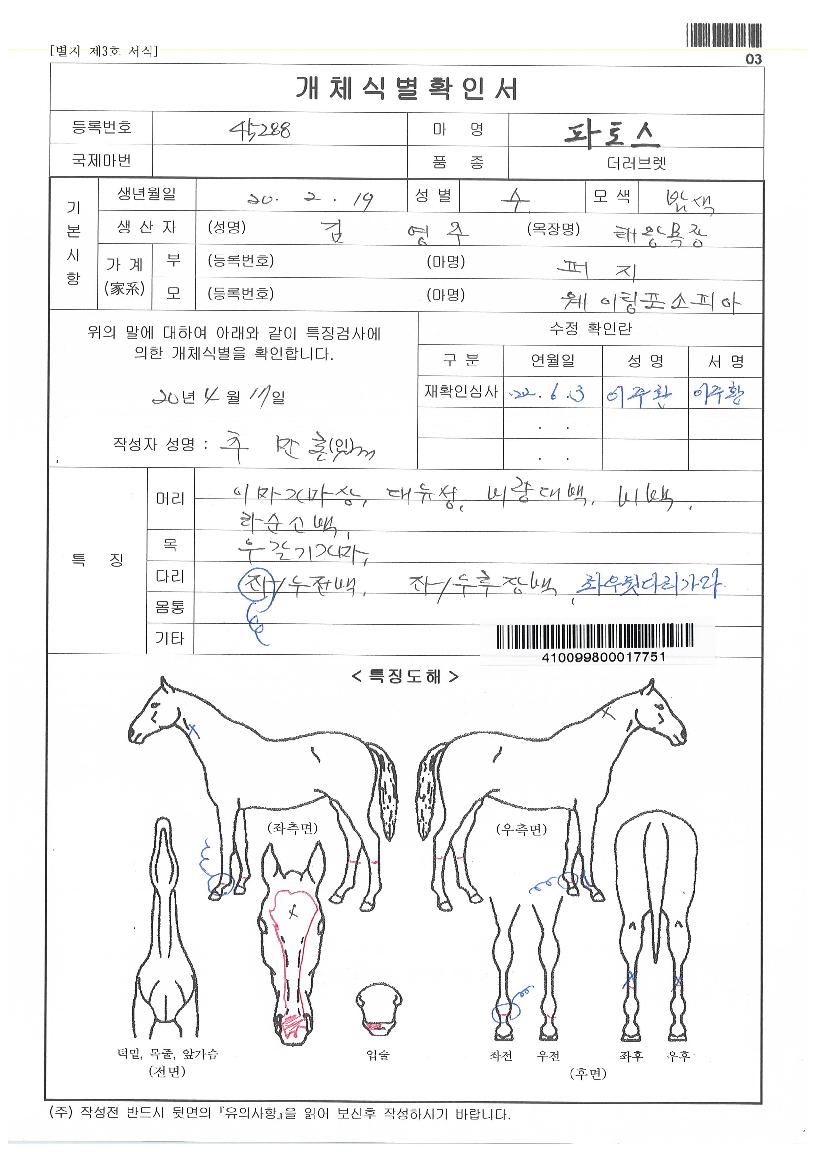 [별지 제3호 서식]
03
개체식별확인서
등록번호 45288 마 명 파토스
국제마번 품 종 더러브렛
기본사항
생년월일 20. 2. 19 성별 수 모색
생산자 (성명) 김 영주 (목장명) 태왕목장
가계(家系) 부 (등록번호) (마명) 퍼지
모 (등록번호) (마명) 웨이팅포소피아
위의 말에 대하여 아래와 같이 특징검사에
의한 개체식별을 확인합니다.
20년 4월 17일
작성자 성명 : (인)
수정 확인란
구분 연월일 성명 서명
재확인심사 22. 6. 3 이주환 이주환
. .
. .
특 징
머리 이마가마상, 대유성, 비량대백, 비백,
하순소백,
목 우갈기가마,
다리 좌/우전백, 좌/우후장백, 좌우뒷다리가마
몸통
기타
410099800017751
< 특징도해 >
(좌측면)
(우측면)
턱밑, 목줄, 앞가슴
(전면)
입술
좌전 우전 좌후 우후
(후면)
(주) 작성전 반드시 뒷면의 『유의사항』을 읽어 보신후 작성하시기 바랍니다.